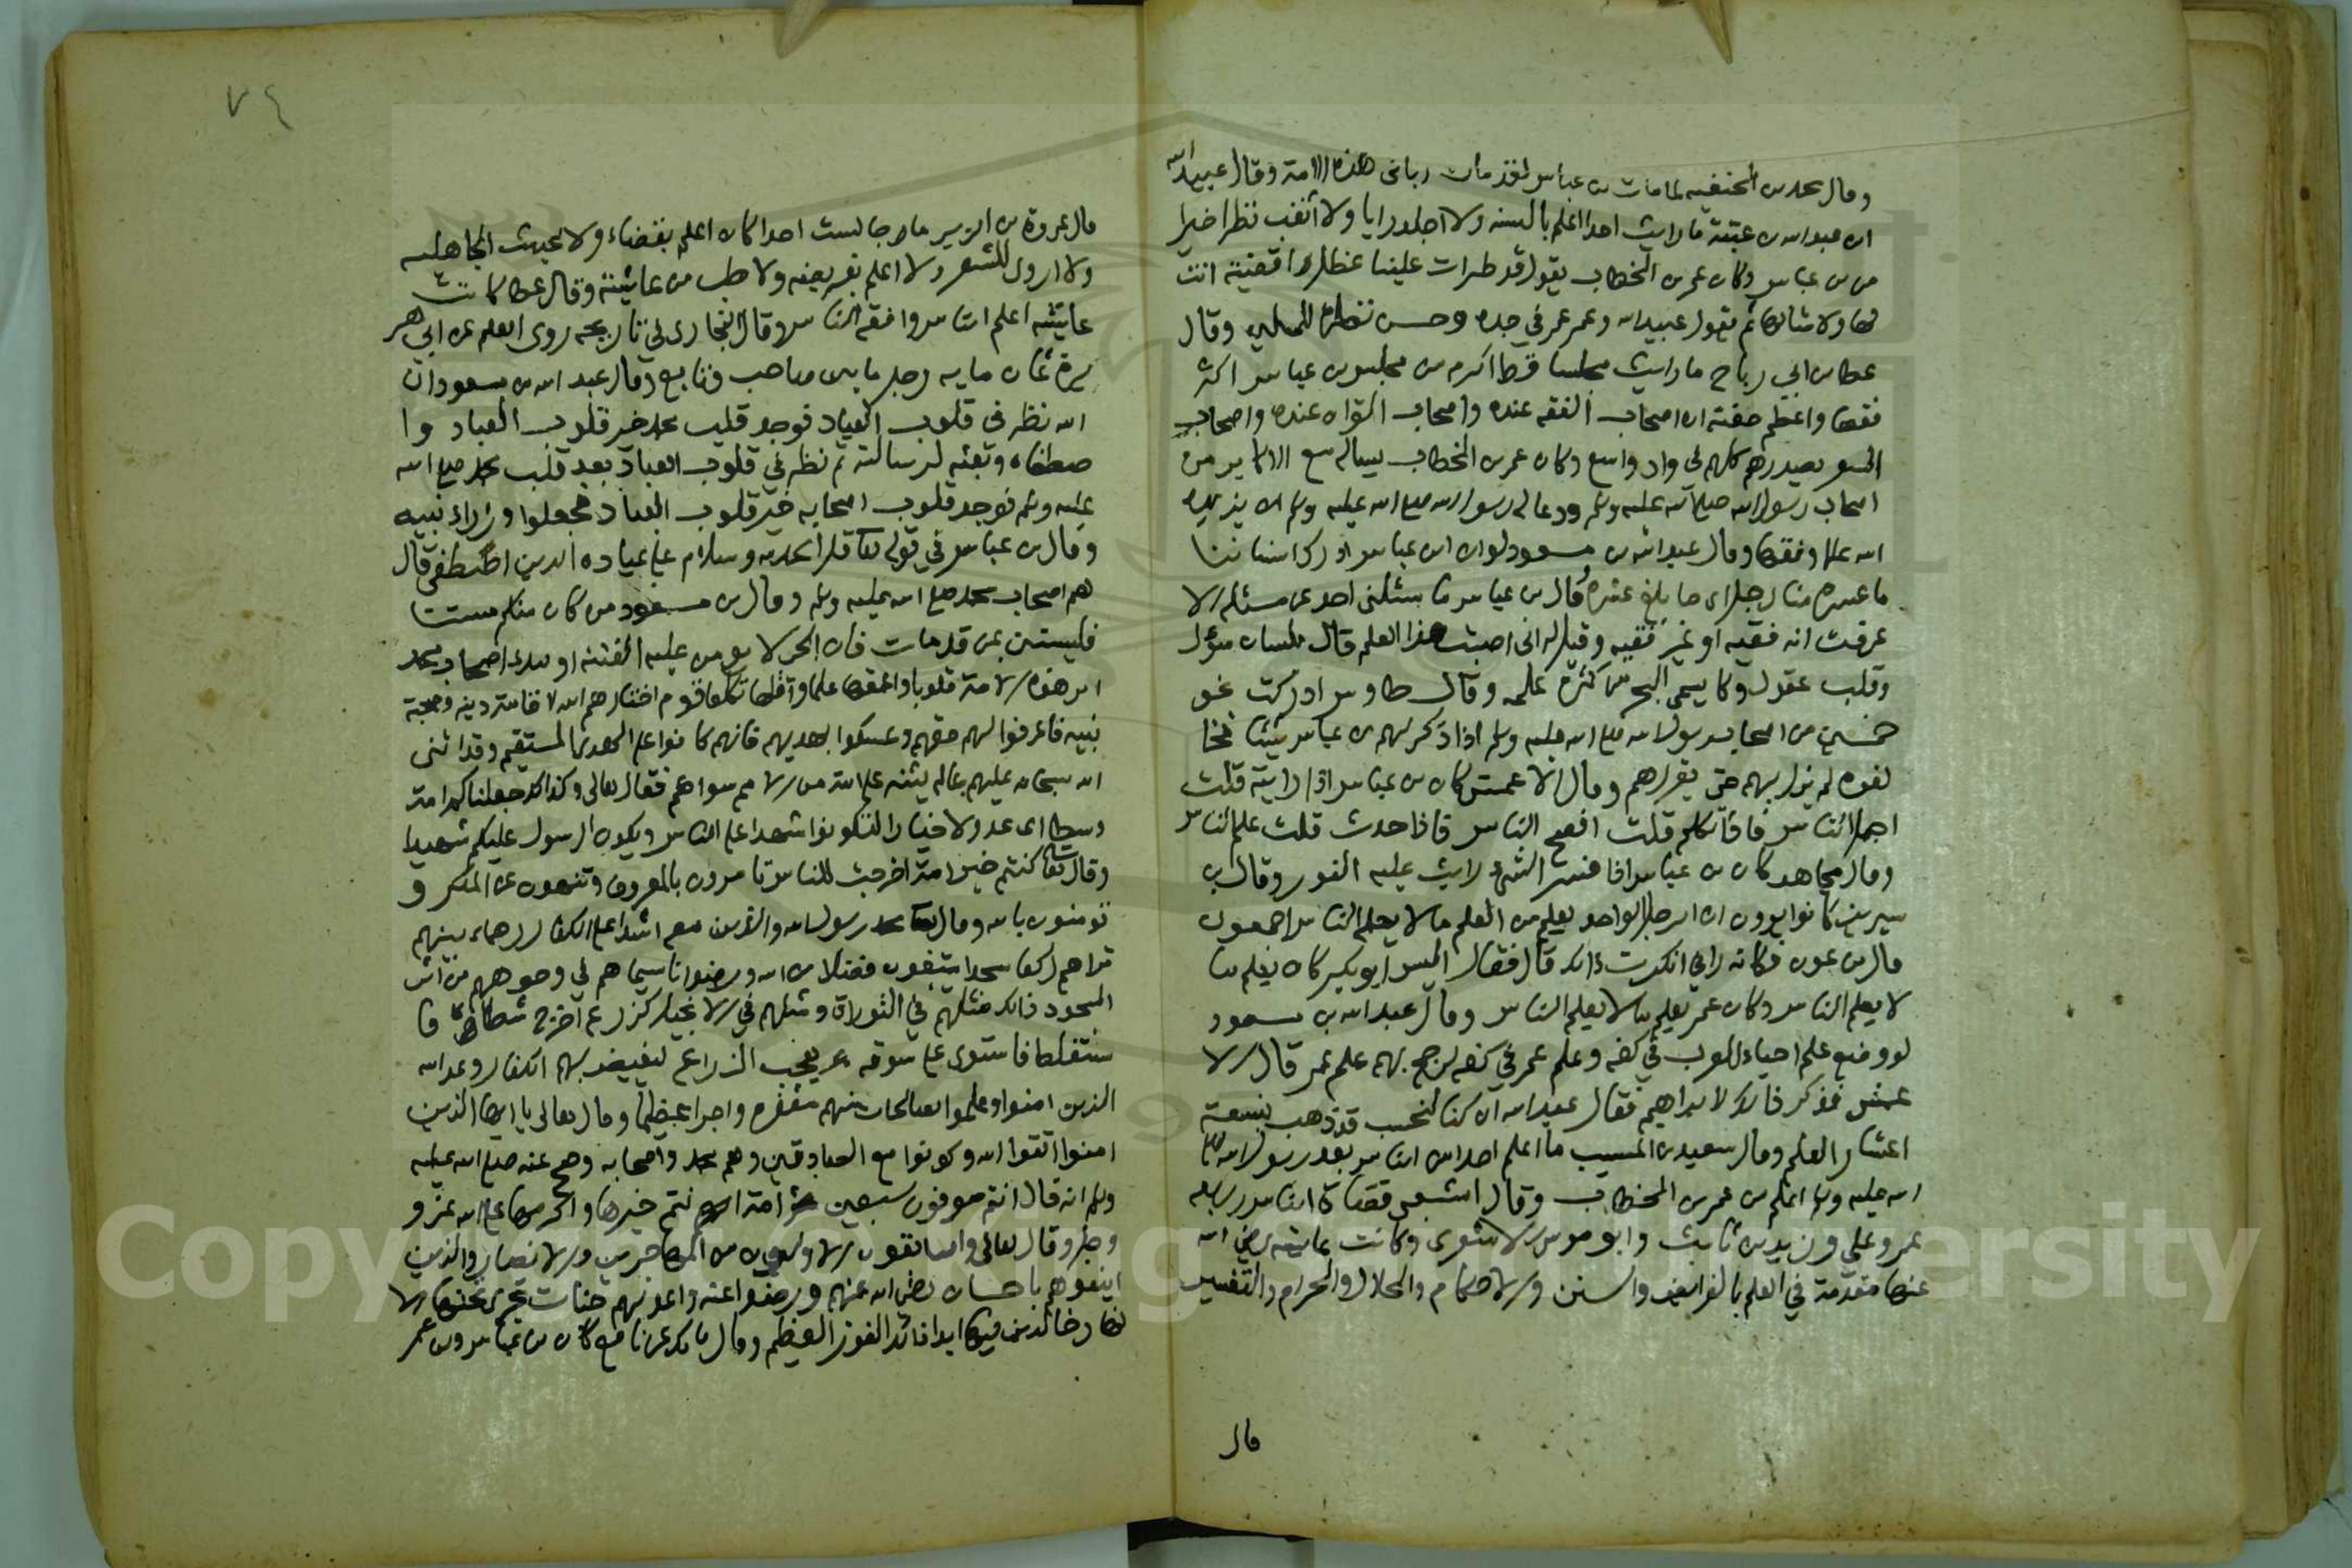 وقال محمد بن الحنفيه لما مات بن عباس لقد مات رباني هذه الامة وقال عبيد الله
ابن عبد الله بن عتبة ما رايت احدا اعلم بالسنه ولا اجلد رايا ولا اثقب نظرا خيرا
من بن عباس وكان عمر بن الخطاب يقول قد طرات علينا عظل اقضية انت
لها ولامثالها ثم يقول عبيد الله وعمر عمر في جده وحسن نظره للمسلمين وقال
عطا بن ابي رباح ما رايت مجلسا قط اكرم من مجلس بن عباس اكثر
فقها واعظم جفنة ان اصحاب الفقه عنده واصحاب القران عنده واصحاب
الشعر يصدرهم كلهم في واد واسع وكان عمر بن الخطاب يساله مع الاكابر من
اصحاب رسول الله صلى الله عليه وسلم ودعا له رسول الله صلى الله عليه وسلم ان يزيده
الله علما وفقها وقال عبد الله بن مسعود لو ان ابن عباس ادرك اسناننا
ما عسره منا رجل اي ما بلغ عشره وقال بن عباس ما سئلني احد عن مسئله الا
عرفت انه فقيه او غير فقيه وقيل له انى اصبت هذا العلم قال بلسان سؤل
وقلب عقول وكا يسمى البحر من كثرة علمه وقال طاوس ادركت نحو
خمسين من اصحاب رسول الله صلى الله عليه وسلم اذا ذكر لهم بن عباس شيئا فخا
لفوه لم يزل بهم حتى يقررهم وقال الاعمش كان بن عباس اذا رايته قلت
اجمل الناس فاذا تكلم قلت افصح الناس فاذا حدث قلت علم الناس
وقال مجاهد كان بن عباس اذا فسر الشئ رايت عليه النور وقال بن
سيرين كانوا يرون ان الرجل الواحد يعلم من العلم ما لا يعلم الناس اجمعون
قال بن عون فكانه راني انكرت ذلك قال فقال اليس ابو بكر كان يعلم ما
لا يعلم الناس وكان عمر يعلم ما لا يعلم الناس وقال عبد الله بن مسعود
لو وضع علم احياء العرب في كفه وعلم عمر في كفه لرجح بهم علم عمر قال الا
عمش فذكر ذلك لابراهيم فقال عبد الله ان كنا لنحسب قد ذهب بتسعة
اعشار العلم وقال سعيد بن المسيب ما اعلم احدا من الناس بعد رسول الله صلى
الله عليه وسلم اعلم من عمر بن الخطاب وقال الشعبي قضاة الناس اربعه
عمر وعلي وزيد بن ثابت وابو موسى الاشعري وكانت عايشه رضي الله
عنها مقدمة في العلم بالفرايض والسنن والاحكام والحلال والحرام والتفسير
قال
٧٤
قال عروة بن الزبير ما جالست احدا كان اعلم بقضاء ولا بحديث الجاهليه
ولا اروى للشعر ولا اعلم بفريضه ولا طب من عايشة وقال عطا كانت
عايشه اعلم الناس وافقه الناس وقال البخاري في تاريخه روى العلم عن ابي هر
يرة ثمان مايه رجل ما بين صاحب وتابع وقال عبد الله بن مسعود ان
الله نظر في قلوب العباد فوجد قلب محمد خير قلوب العباد وا
صطفاه وبعثه لرسالته ثم نظر في قلوب العباد بعد قلب محمد صلى الله
عليه وسلم فوجد قلوب اصحابه خير قلوب العباد فجعلوا وزراء نبيه
وقال بن عباس في قوله تعا قل الحمد لله وسلام على عباده الذين اصطفى قال
هم اصحاب محمد صلى الله عليه وسلم وقال بن مسعود من كان منكم مستنا
فليستن بمن قد مات فان الحي لا يومن عليه الفتنه اوليك اصحاب محمد
ابر هذه الامة قلوبا واعمقها علما واقلها تكلفا قوم اختارهم الله لاقامة دينه وصحبة
نبيه فاعرفوا لهم حقهم وتمسكوا بهديهم فانهم كانوا على الهدى المستقيم وقد اثنى
الله سبحانه عليهم بما لم يثنه على امة من الامم سواهم فقال تعالى وكذلك جعلناكم امة
وسطا اي عدولا خيارا لتكونوا شهدا على الناس ويكون الرسول عليكم شهيدا
وقال تعا كنتم خير امة اخرجت للناس تامرون بالمعروف وتنهون عن المنكر و
تومنون بالله وقال تعا محمد رسول الله والذين معه اشداء على الكفار رحماء بينهم
تراهم ركعا سجدا يبتغون فضلا من الله ورضوانا سيماهم في وجوههم من اثر
السجود ذلك مثلهم في التوراة ومثلهم في الانجيل كزرع اخرج شطاه فا
ستغلظ فاستوى على سوقه يعجب الزراع ليغيض بهم الكفار وعد الله
الذين امنوا وعملوا الصالحات منهم مغفره واجرا عظيما وقال تعالى يا ايها الذين
امنوا اتقوا الله وكونوا مع الصادقين وهم محمد واصحابه وصح عنه صلى الله عليه
وسلم انه قال انتم موفون سبعين امة انتم خيرها واكرمها على الله عز و
وجل وقال تعالى والسابقون الاولون من المهاجرين والانصار والذين
اتبعوهم باحسان رضي الله عنهم ورضوا عنه واعد لهم جنات تجري تحتها الا
نهار خالدين فيها ابدا ذلك الفوز العظيم وقال مالك عن نافع كان بن عباس وبن عمر
Copyright © King Saud University